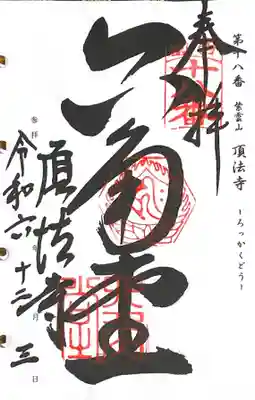 第十八番 紫雲山 頂法寺
ーろっかくどうー
奉拝
六角堂
頂法寺
参拝
令和六年十二月三日